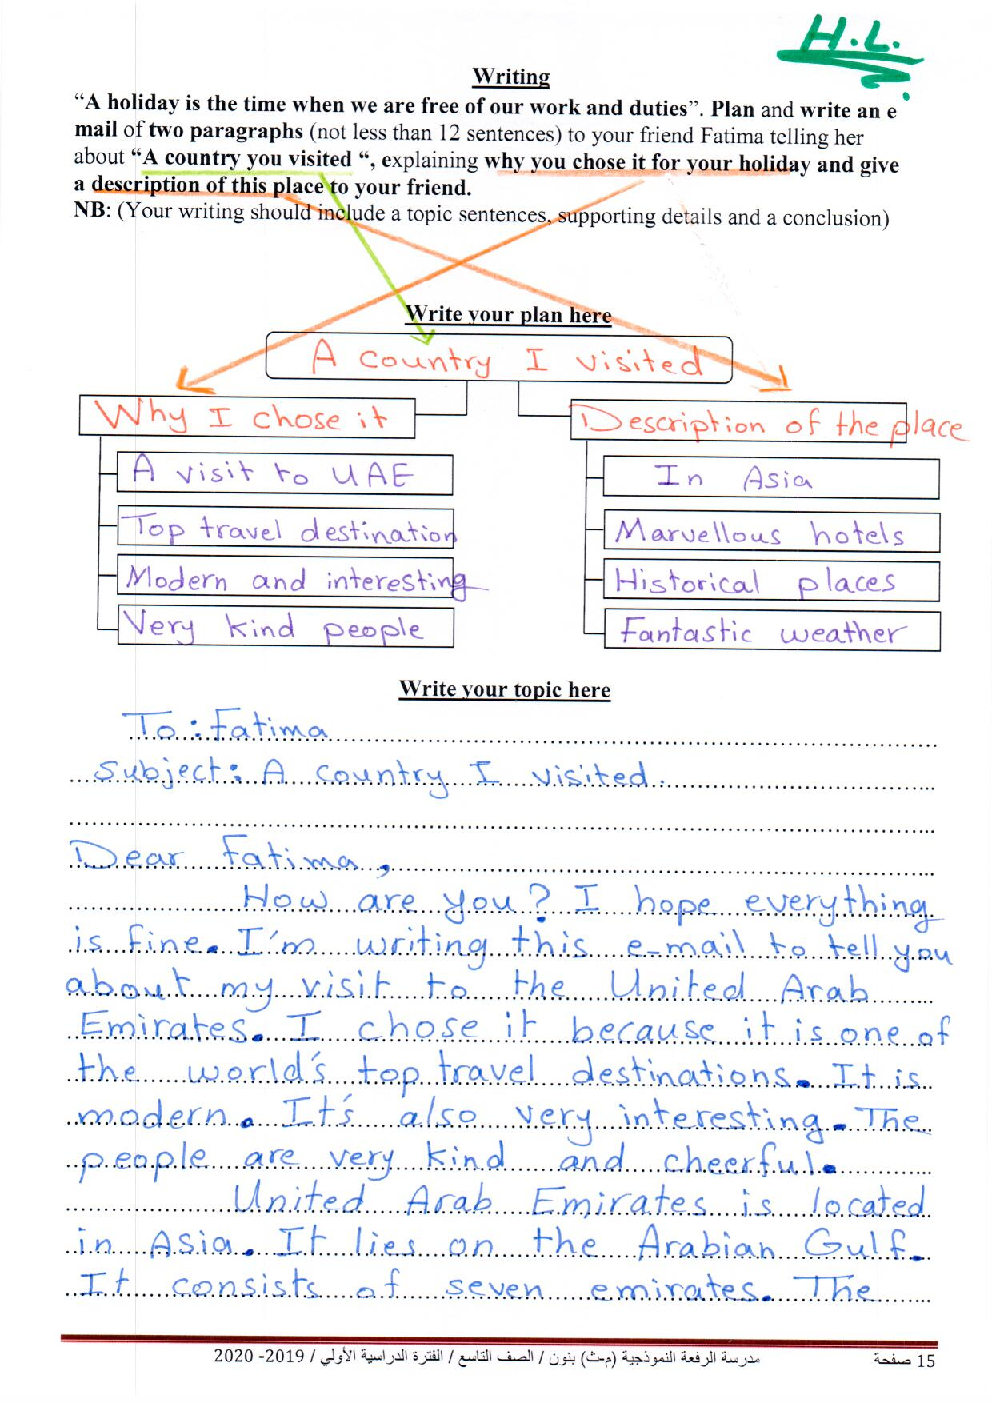 H.L.
Writing
“A holiday is the time when we are free of our work and duties”. Plan and write an e
mail of two paragraphs (not less than 12 sentences) to your friend Fatima telling her
about “A country you visited “, explaining why you chose it for your holiday and give
a description of this place to your friend.
NB: (Your writing should include a topic sentences, supporting details and a conclusion)
Write your plan here
A country I visited
Why I chose it
Description of the place
A visit to UAE
In Asia
Top travel destination
Marvellous hotels
Modern and interesting
Historical places
Very kind people
Fantastic weather
Write your topic here
To: Fatima
Subject: A country I visited.
Dear Fatima,
How are you? I hope everything
is fine. I'm writing this e-mail to tell you
about my visit to the United Arab
Emirates. I chose it because it is one of
the world's top travel destinations. It is
modern. It's also very interesting. The
people are very kind and cheerful.
United Arab Emirates is located
in Asia. It lies on the Arabian Gulf.
It consists of seven emirates. The
مدرسة الرفعة النموذجية (م-ث) بنون / الصف التاسع / الفترة الدراسية الأولي / 2019- 2020
15 صفحة